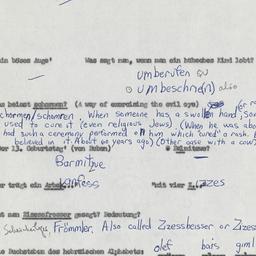 in böses Auge' Was sagt man, wenn man ein hübsches Kind lobt?
umberufen
umbeschrie(n) also
heisst schormen? (A way of exorcising the evil eye)
schormen/schomren. When someone has a swollen hand,
used to cure it (even religious Jews). (When he was
had such a ceremony performed on him which "cured" a rash.
believed in it. About 60 years ago) (Other case with a cow)
er 13. Geburtstag' (von Buben)
Barmitzve
er trägt ein "mit vier
zizes
man Zizesfresser gesagt? Bedeutung?
Frömmler. Also called Zizessbeisser or
Buchstaben des hebräischen Alphabets:
olef bais giml